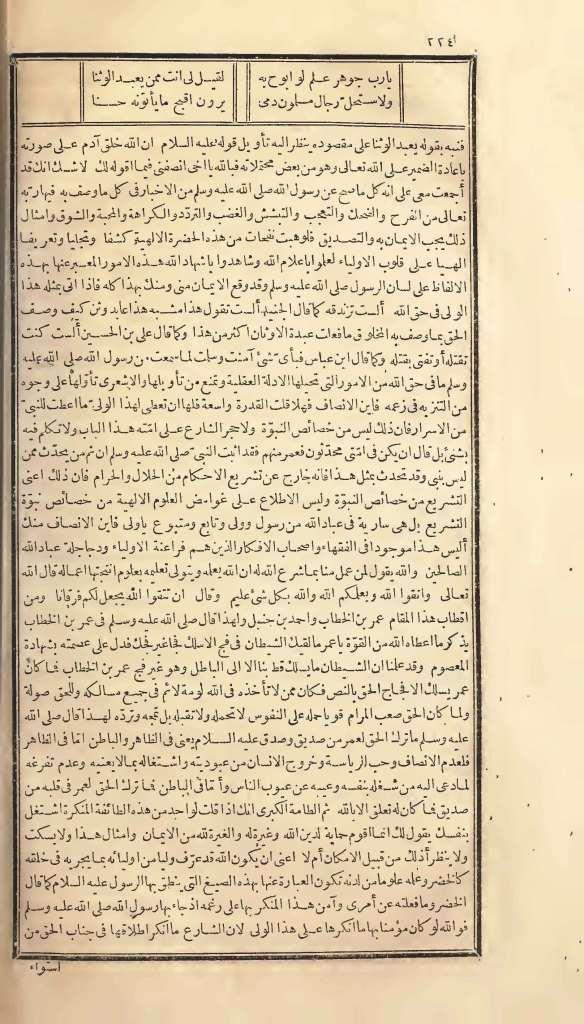 ٢٢٤
يارب جوهر علم لو ابوح به لقيل لى انت ممن يعبد الوثنا
ولاستحل رجال مسلمون دمى يرون اقبح ما يأتونه حسنا
فنبه بقوله يعبد الوثنا على مقصوده ينظر اليه تأويل قوله عليه السلام ان الله خلق آدم على صورته
باعادة الضمير على الله تعالى وهو من بعض محتملاته فبالله يا اخى انصفنى فيما اقوله لك لاشك انك قد
أجمعت معى على انه كل ما صح عن رسول الله صلى الله عليه وسلم من الاخبار فى كل ما وصف به فيها ربه
تعالى من الفرح والضحك والتعجب والتبشش والغضب والتردد والكراهة والمحبة والشوق وامثال
ذلك يجب الايمان به والتصديق فلوهبت نفحات من هذه الحضرة الالهية كشفا وتجليا وتعريفا
الهيا على قلوب الاولياء لعلموا باعلام الله وشاهدوا باشهاد الله هذه الامور المعبر عنها بهذه
الالفاظ على لسان الرسول صلى الله عليه وسلم وقد وقع الايمان منى ومنك بهذا كله فاذا اتى بمثله هذا
الولى فى حق الله ألست تزندقه كما قال الجنيد ألست تقول هذا مشبه هذا عابد وثن كيف وصف
الحق بما وصف به المخلوق ما فعلت عبدة الاوثان اكثر من هذا وكما قال على بن الحسين ألست كنت
تقتله أو تفتى بقتله وكما قال ابن عباس فبأى شئ آمنت وسلمت لما سمعت من رسول الله صلى الله عليه
وسلم ما فى حق الله من الامور التى تحيلها الادلة العقلية وتمنع من تأويلها والاشعرى تأولها على وجوه
من التنزيه فى زعمه فاين الانصاف فهلا قلت القدرة واسعة فلها ان تعطى لهذا الولى ما اعطت للنبى
من الاسرار فان ذلك ليس من خصائص النبوة ولا حجر الشارع على امته هذا الباب ولا تكلم فيه
بشئ بل قال ان يكن فى امتى محدثون فعمر منهم فقد اثبت النبى صلى الله عليه وسلم ان ثم من يحدث ممن
ليس بنبى وقد تحدث بمثل هذا فانه خارج عن تشريع الاحكام من الحلال والحرام فان ذلك اعنى
التشريع من خصائص النبوة وليس الاطلاع على غوامض العلوم الالهية من خصائص نبوة
التشريع بل هى سارية فى عباد الله من رسول وولى وتابع ومتبوع يا ولى فاين الانصاف منك
أليس هذا موجودا فى الفقهاء واصحاب الافكار الذين هم فراعنة الاولياء ودجاجلة عباد الله
الصالحين والله يقول لمن عمل منا بما شرع الله له ان الله يعلمه ويتولى تعليمه بعلوم انتجتها اعماله قال الله
تعالى واتقوا الله ويعلمكم الله والله بكل شئ عليم وقال ان تتقوا الله يجعل لكم فرقانا ومن
اقطاب هذا المقام عمر بن الخطاب واحمد بن حنبل ولهذا قال صلى الله عليه وسلم فى عمر بن الخطاب
يذكر ما اعطاه الله من القوة يا عمر ما لقيك الشيطان فى فج الا سلك فجا غير فجك فدل على عصمته بشهادة
المعصوم وقد علمنا ان الشيطان ما يسلك قط بنا الا الى الباطل وهو غير فج عمر بن الخطاب فما كان
عمر يسلك الا فجاج الحق بالنص فكان ممن لا تأخذه فى الله لومة لائم فى جميع مسالكه وللحق صولة
ولما كان الحق صعب المرام قويا حمله على النفوس لا تحمله ولا تقبله بل تمجه وترده لهذا قال صلى الله
عليه وسلم ما ترك الحق لعمر من صديق وصدق عليه السلام يعنى فى الظاهر والباطن اما فى الظاهر
فلعدم الانصاف وحب الرياسة وخروج الانسان من عبوديته واشتغاله بما لا يعنيه وعدم تفرغه
لما دعى اليه من شغله بنفسه وعيبه عن عيوب الناس وأما فى الباطن فما ترك الحق لعمر فى قلبه من
صديق فما كان له تعلق الا بالله ثم الطامة الكبرى انك اذا قلت لواحد من هذه الطائفة المنكرة اشتغل
بنفسك يقول لك انما اقوم حماية لدين الله وغيرة له والغيرة لله من الايمان وامثال هذا ولا يسكت
ولا ينظر أذلك من قبيل الامكان أم لا اعنى ان يكون الله قد عرف وليا من اوليائه بما يجريه فى خلقه
كالخضر وعلمه علوما من لدنه تكون العبارة عنها بهذه الصيغ التى ينطق بها الرسول عليه السلام كما قال
الخضر وما فعلته عن أمرى وآمن هذا المنكر بها على رغمه اذ جاء بها رسول الله صلى الله عليه وسلم
فوالله لو كان مؤمنا بها ما انكرها على هذا الولى لان الشارع ما انكر اطلاقها فى جناب الحق من
استواء